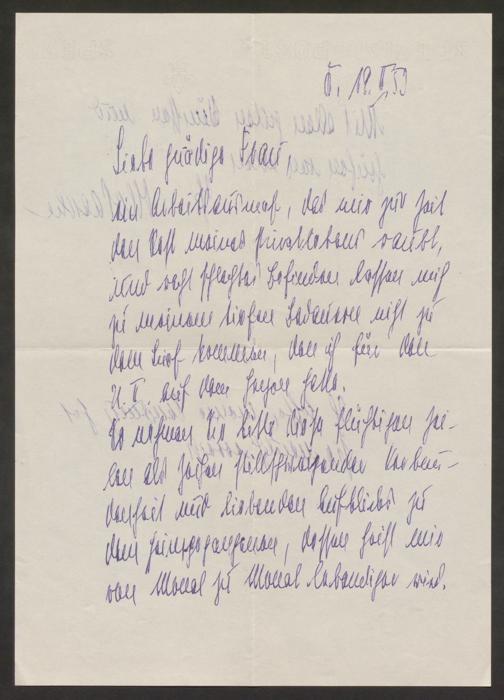 19. V 53
Liebe gnädige Frau,
ein Arbeitsausmaß, das mir zur Zeit
den Rest meines Privatlebens raubt,
und recht schlechtes Befinden lassen mich
zu meinem tiefen Bedauern nicht zu
dem Brief kommen, den ich für den
21. V. auf dem Herzen habe.
So nehmen Sie bitte diese flüchtigen Zei-
len als Zeichen stillschweigender Verbun-
denheit und liebenden Aufblicks zu
dem Heimgegangenen, dessen Geist mir
von Monat zu Monat lebendiger wird.